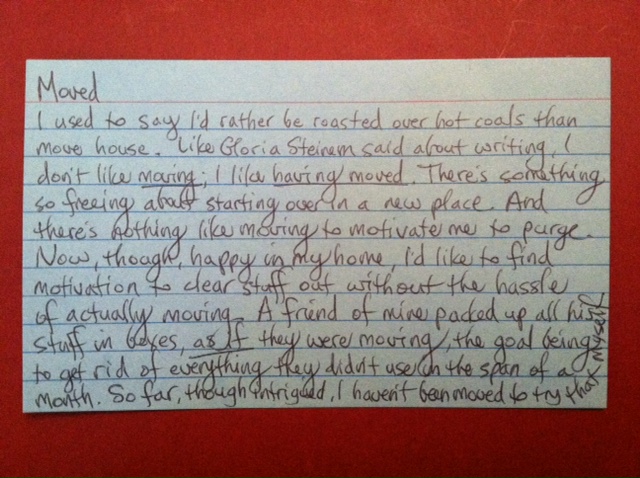 Moved
I used to say I'd rather be roasted over hot coals than
move house. Like Gloria Steinem said about writing, I
don't like moving; I like having moved. There's something
so freeing about starting over in a new place. And
there's nothing like moving to motivate me to purge.
Now, though, happy in my home, I'd like to find
motivation to clear stuff out without the hassle
of actually moving. A friend of mine packed up all his
stuff in boxes, as if they were moving, the goal being
to get rid of everything they didn't use in the span of a
month. So far, though intrigued, I haven't been moved to try that
myself